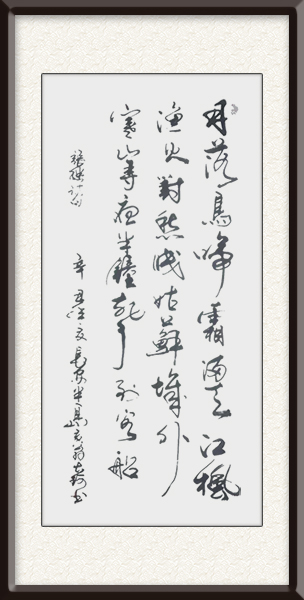 月落烏啼霜滿天江楓
漁火對愁眠姑蘇城外
寒山寺夜半鐘聲到客船
張繼詩
辛丑 夏長安半 翁 書